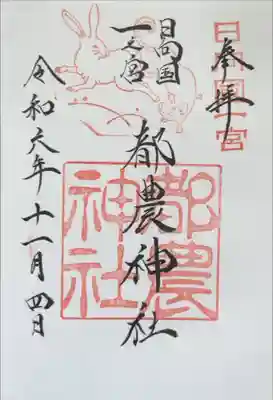 奉拝
日向国一宮
日向国
一之宮
都農神社
都農神社
令和六年十一月四日